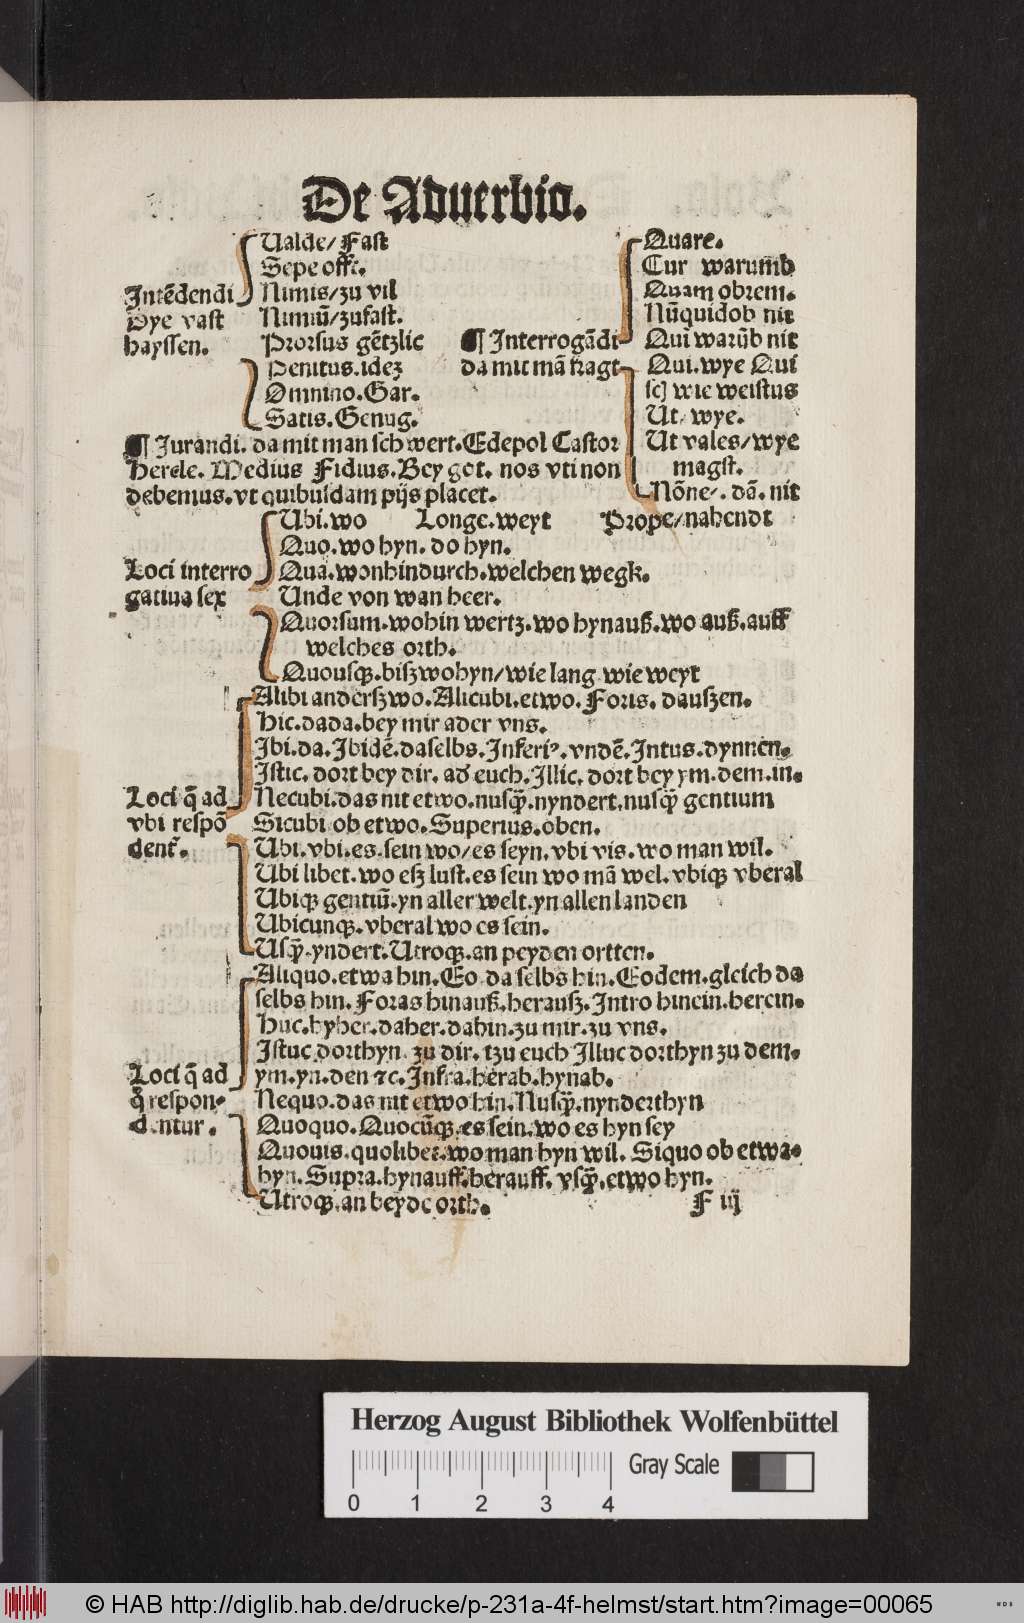 De Aduerbio.
Ualde/ Fast
Sepe offt.
Intēdendi Nimis/zu vil
Dye vast Nimiū/zufast.
hayssen. Prorsus gētzlic
Penitus.idez
Omnino.Gar.
Satis.Genug.
Quare.
Cur warumb
Quam obrem.
Nūquidob nit
¶ Interrogādi Qui warūb nit
da mit mā fragt Qui.wye Qui
sc) wie weistus
Ut/ wye.
Ut vales/wye
magst.
Nōne/. dā. nit
¶ Jurandi. da mit man schwert.Edepol Castor
Hercle. Medius Fidius.Bey got. nos vti non
debemus.vt quibusdam pijs placet.
Ubi.wo Longe.weyt Prope/nahendt
Quo.wo hyn. do hyn.
Loci interro Qua.wonhindurch.welchen wegk.
gatiua sex Unde von wan heer.
Quorsum.wohin wertz.wo hynauß.wo auß.auff
welches orth.
Quousqꝫ.biszwohyn/wie lang wie weyt
Alibi anderszwo.Alicubi.etwo. Foris. dauszen.
Hic.dada.bey mir ader vns.
Ibi.da.Ibidē.daselbs.Inferiꝰ.vndē.Intus.dynnen.
Istic. dort bey dir. ad euch.Illic. dort bey ym.dem.in.
Loci q̄ ad Necubi.das nit etwo.nusqꝫ̄.nyndert.nusqꝫ̄ gentium
vbi respō Sicubi ob etwo.Superius.oben.
dent̄. Ubi.vbi.es.sein wo/es seyn.vbi vis.wo man wil.
Ubi libet.wo esz lust.es sein wo mā wel.vbiqꝫ vberal
Ubiqꝫ gentiū.yn aller welt.yn allen landen
Ubicunqꝫ.vberal wo es sein.
Usqꝫ̄.yndert.Utroqꝫ.an peyden ortten.
Aliquo.etwa hin.Eo da selbs hin.Eodem.gleich da
selbs hin.Foras hinauß.herausz.Intro hinein.herein.
Huc.hyher.daher.dahin.zu mir.zu vns.
Istuc dorthyn zu dir. tzu euch Illuc dorthyn zu dem.
Loci q̄ ad ym.yn.den ⁊c.Infra.herab.hynab.
q̄ respon- Nequo.das nit etwo hin.Nusqꝫ̄.nynderthyn
dentur. Quoquo.Quocūqꝫ.es sein.wo es hyn sey
Quouis.quolibet.wo man hyn wil. Siquo ob etwa-
hyn.Supra.hynauff.herauff. vsqꝫ̄.etwo hyn.
Utroqꝫ.an beyde orth. F iij
Herzog August Bibliothek Wolfenbüttel
0 1 2 3 4
Gray Scale
© HAB http://diglib.hab.de/drucke/p-231a-4f-helmst/start.htm?image=00065